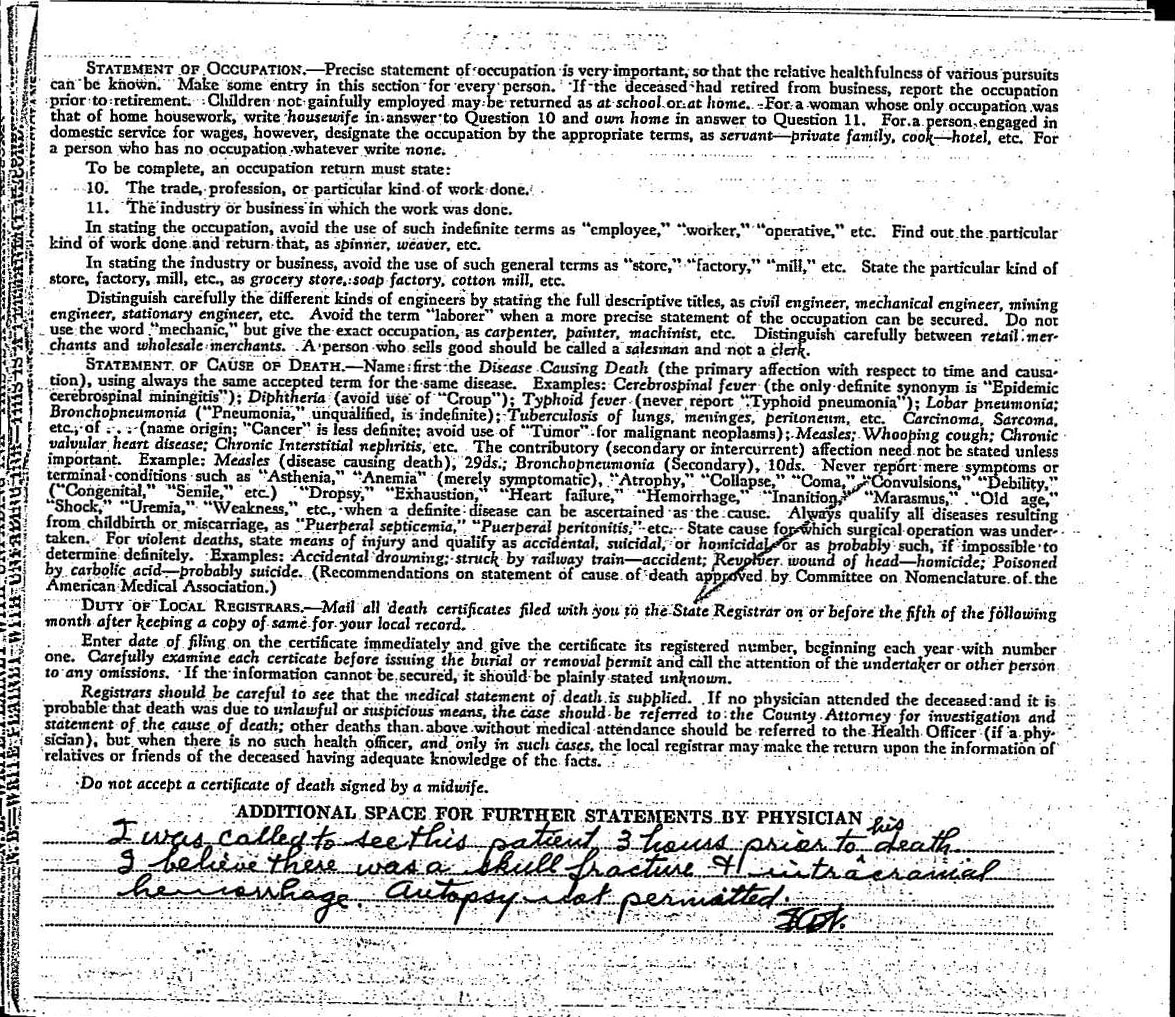 STATEMENT OF OCCUPATION.—Precise statement of occupation is very important, so that the relative healthfulness of various pursuits
can be known. Make some entry in this section for every person. If the deceased had retired from business, report the occupation
prior to retirement. Children not gainfully employed may be returned as at school or at home. For a woman whose only occupation was
that of home housework, write housewife in answer to Question 10 and own home in answer to Question 11. For a person engaged in
domestic service for wages, however, designate the occupation by the appropriate terms, as servant—private family, cook—hotel, etc. For
a person who has no occupation whatever write none.
To be complete, an occupation return must state:
10. The trade, profession, or particular kind of work done.
11. The industry or business in which the work was done.
In stating the occupation, avoid the use of such indefinite terms as "employee," "worker," "operative," etc. Find out the particular
kind of work done and return that, as spinner, weaver, etc.
In stating the industry or business, avoid the use of such general terms as "store," "factory," "mill," etc. State the particular kind of
store, factory, mill, etc., as grocery store, soap factory, cotton mill, etc.
Distinguish carefully the different kinds of engineers by stating the full descriptive titles, as civil engineer, mechanical engineer, mining
engineer, stationary engineer, etc. Avoid the term "laborer" when a more precise statement of the occupation can be secured. Do not
use the word "mechanic," but give the exact occupation, as carpenter, painter, machinist, etc. Distinguish carefully between retail mer-
chants and wholesale merchants. A person who sells good should be called a salesman and not a clerk.
STATEMENT OF CAUSE OF DEATH.—Name first the Disease Causing Death (the primary affection with respect to time and causa-
tion), using always the same accepted term for the same disease. Examples: Cerebrospinal fever (the only definite synonym is "Epidemic
cerebrospinal miningitis"); Diphtheria (avoid use of "Croup"); Typhoid fever (never report "Typhoid pneumonia"); Lobar pneumonia;
Bronchopneumonia ("Pneumonia," unqualified, is indefinite); Tuberculosis of lungs, meninges, peritoneum, etc. Carcinoma, Sarcoma,
etc., of . . . (name origin; "Cancer" is less definite; avoid use of "Tumor" for malignant neoplasms); Measles; Whooping cough; Chronic
valvular heart disease; Chronic Interstitial nephritis, etc. The contributory (secondary or intercurrent) affection need not be stated unless
important. Example: Measles (disease causing death), 29ds.; Bronchopneumonia (Secondary), 10ds. Never report mere symptoms or
terminal conditions such as "Asthenia," "Anemia" (merely symptomatic), "Atrophy," "Collapse," "Coma," "Convulsions," "Debility,"
("Congenital," "Senile," etc.) "Dropsy," "Exhaustion," "Heart failure," "Hemorrhage," "Inanition," "Marasmus," "Old age,"
"Shock," "Uremia," "Weakness," etc., when a definite disease can be ascertained as the cause. Always qualify all diseases resulting
from childbirth or miscarriage, as "Puerperal septicemia," "Puerperal peritonitis," etc. State cause for which surgical operation was under-
taken. For violent deaths, state means of injury and qualify as accidental, suicidal, or homicidal, or as probably such, if impossible to
determine definitely. Examples: Accidental drowning; struck by railway train—accident; Revolver wound of head—homicide; Poisoned
by carbolic acid—probably suicide. (Recommendations on statement of cause of death approved by Committee on Nomenclature of the
American Medical Association.)
DUTY OF LOCAL REGISTRARS.—Mail all death certificates filed with you to the State Registrar on or before the fifth of the following
month after keeping a copy of same for your local record.
Enter date of filing on the certificate immediately and give the certificate its registered number, beginning each year with number
one. Carefully examine each certicate before issuing the burial or removal permit and call the attention of the undertaker or other person
to any omissions. If the information cannot be secured, it should be plainly stated unknown.
Registrars should be careful to see that the medical statement of death is supplied. If no physician attended the deceased and it is
probable that death was due to unlawful or suspicious means, the case should be referred to the County Attorney for investigation and
statement of the cause of death; other deaths than above without medical attendance should be referred to the Health Officer (if a phy-
sician), but when there is no such health officer, and only in such cases, the local registrar may make the return upon the information of
relatives or friends of the deceased having adequate knowledge of the facts.
Do not accept a certificate of death signed by a midwife.
ADDITIONAL SPACE FOR FURTHER STATEMENTS BY PHYSICIAN
I was called to see this patient 3 hours prior to his death.
I believe there was a skull fracture & intracranial
hemorrhage. Autopsy not permitted.